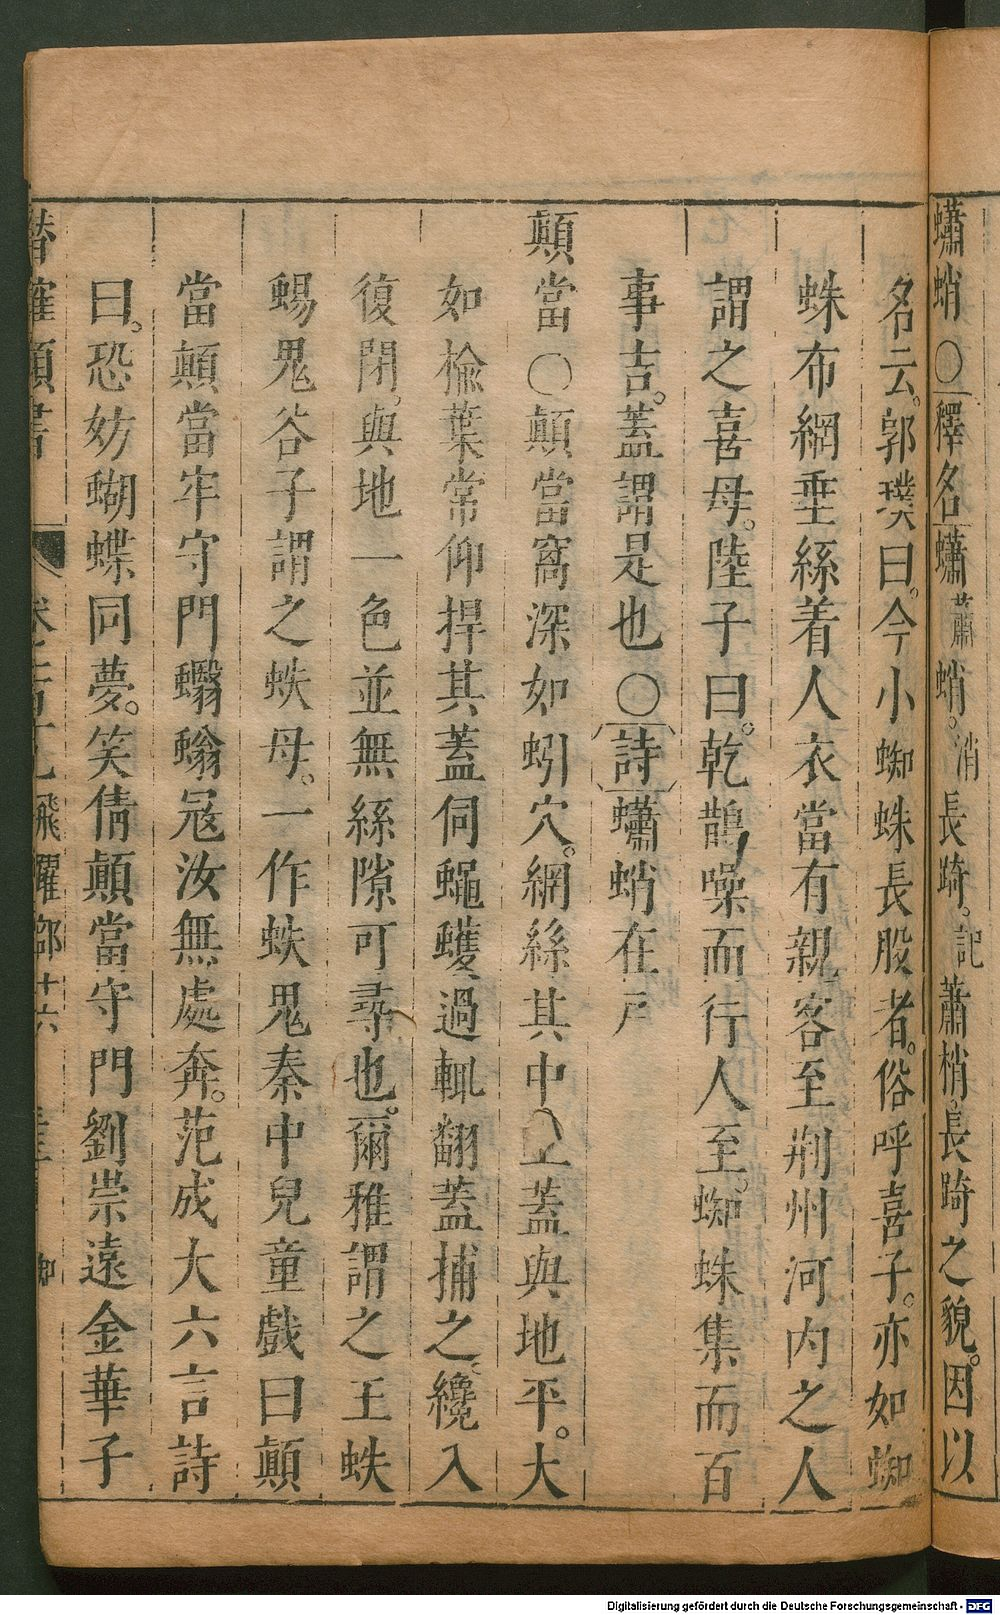 蠨蛸〇釋名蠨蕭蛸。消長踦。記蕭梢。長踦之貌。因以
名云。郭璞曰。今小蜘蛛長股者。俗呼喜子。亦如蜘
蛛布網垂絲着人衣當有親客至荆州河内之人
謂之喜母。陸子曰。乾鵲噪而行人至。蜘蛛集而百
事吉。蓋謂是也〇詩蠨蛸在戶
顛當〇顛當窩深如蚓穴。網絲其中上蓋與地平。大
如榆葉常仰捍其蓋伺蠅蠖過輒翻蓋捕之纔入
復閉。與地一色並無絲隙可尋也。爾雅謂之王蛈
蜴鬼谷子謂之蛈母。一作蛈鬼秦中兒童戲曰顛
當顛當牢守門蠮螉冦汝無處奔。范成大六言詩
曰。恐妨蝴蝶同夢。笑倩顛當守門劉崇遠金華子
飛躍部十六
Digitalisierung gefördert durch die Deutsche Forschungsgemeinschaft - DFG